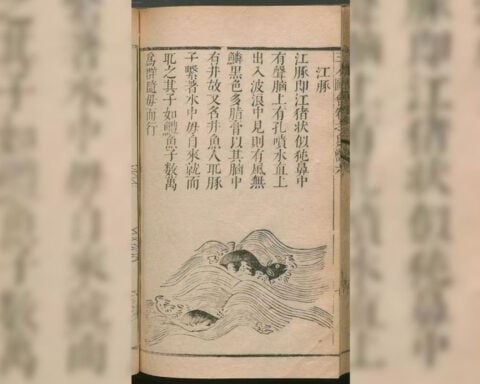 江豚
江豚即江猪狀似㹠鼻中
有聲腦上有孔噴水直上
出入波浪中見則有風無
鱗黑色多脂膏以其腦中
有井故又名井魚人取豚
子繫著水中母自來就而
取之其子如鱧魚子數萬
爲群隨母而行